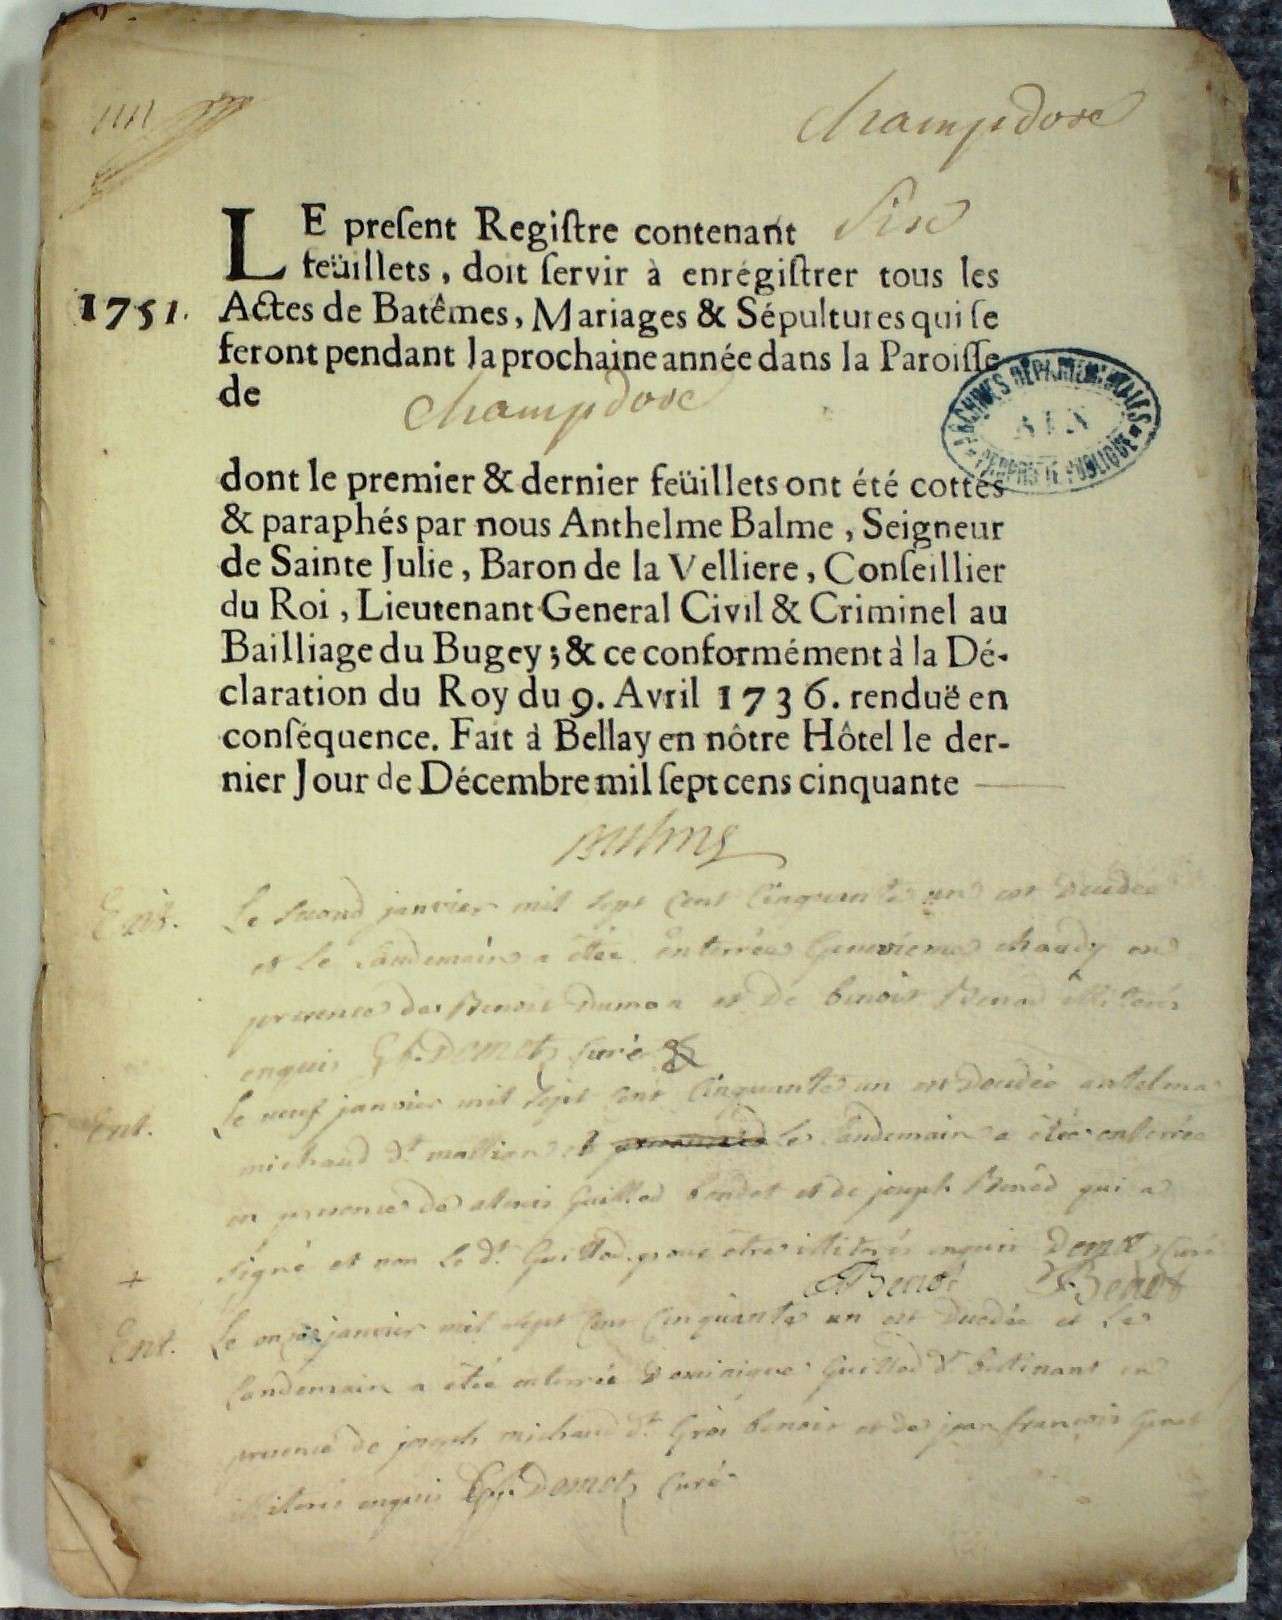 Champdore
LE preſent Regiſtre contenant Six
feüillets, doit ſervir à enrégiſtrer tous les
1751. Actes de Batêmes, Mariages & Sépultures qui ſe
feront pendant la prochaine année dans la Paroiſſe
de Champdore
ARCHIVES DÉPARTEMENTALES
AIN
PROPRIÉTÉ PUBLIQUE
dont le premier & dernier feüillets ont été cottés
& paraphés par nous Anthelme Balme, Seigneur
de Sainte Julie, Baron de la Velliere, Conſeillier
du Roi, Lieutenant General Civil & Criminel au
Bailliage du Bugey; & ce conformément à la Dé-
claration du Roy du 9. Avril 1736. renduë en
conſéquence. Fait à Bellay en nôtre Hôtel le der-
nier Jour de Décembre mil ſept cens cinquante
Balme
Ent. Le second janvier mil sept cent cinquante un est
et le landemain a étée enterrée chaudy en
presence de Benoit et de benoit
enquis Demetz curé
Ent. Le neuf janvier mil sept cent cinquante un est antelma
michaud et le landemain a étée enterrée
en presence de et de joseph Benod qui a
signé et non le dt. Guillod pour être enquis curé
Ent. Le janvier mil sept cent cinquante un est et le
landemain a étée enterrée Dominique Guillod en
presence de joseph michaud dt. benoit et de jean françois
enquis Demetz curé